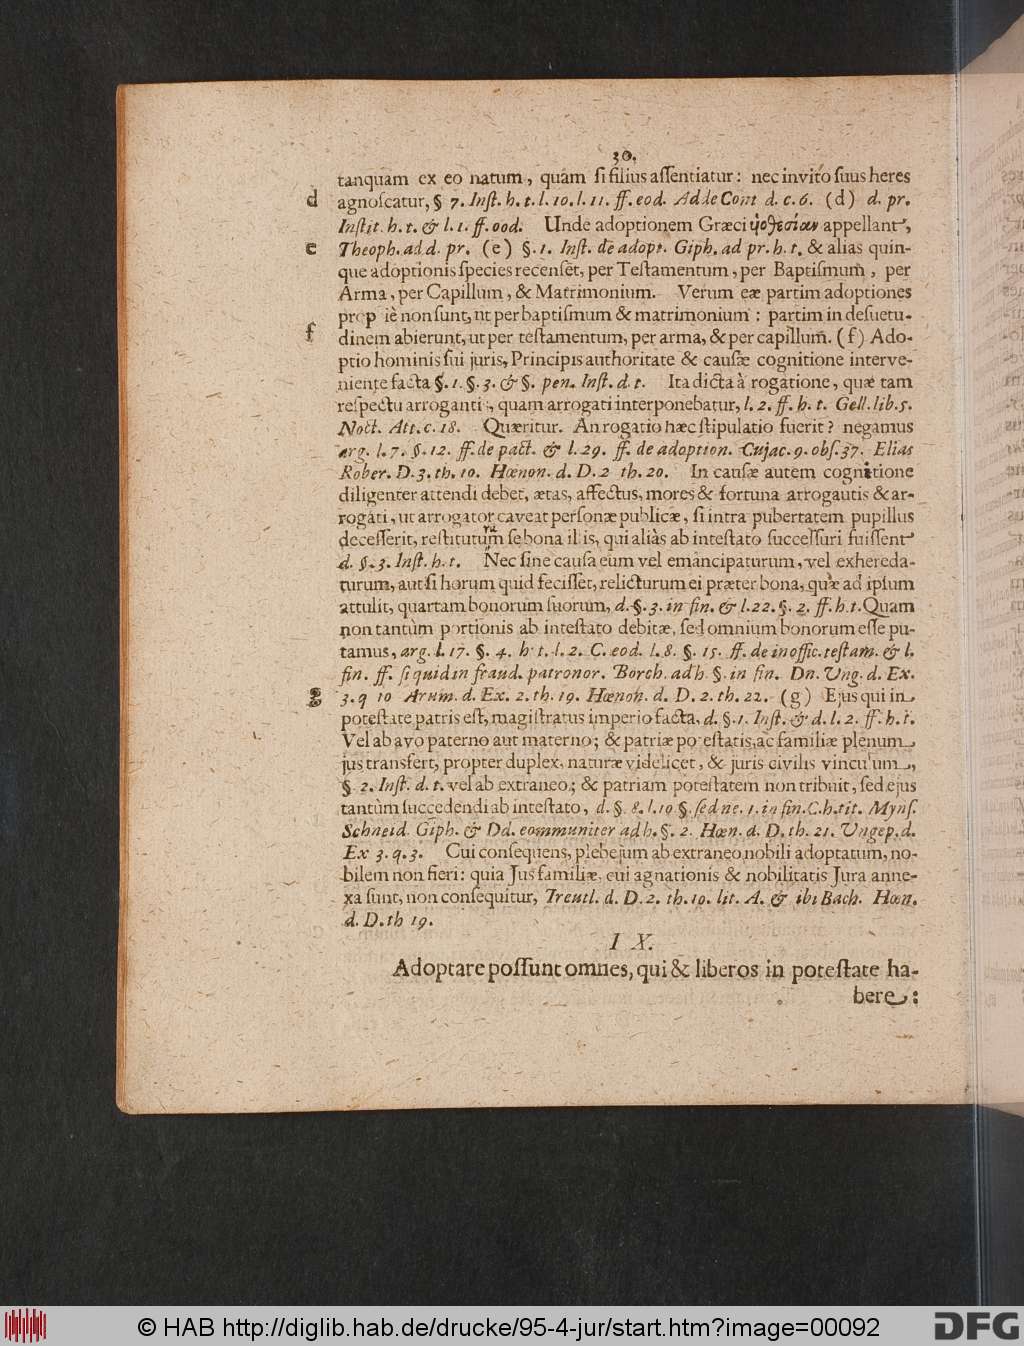 30.
tanquam ex eo natum, quàm si filius assentiatur: nec invito suus heres
d agnoscatur, § 7. Inst. h. t. l. 10. l. 11. ff. eod. Adde Cont d. c. 6. (d) d. pr.
Instit. h. t. & l. 1. ff. ood. Unde adoptionem Græci ὑοθεσίαν appellant,
e Theoph. ad d. pr. (e) §. 1. Inst. de adopt. Giph. ad pr. h. t. & alias quin-
que adoptionis species recenset, per Testamentum, per Baptismum, per
Arma, per Capillum, & Matrimonium. Verum eæ partim adoptiones
prop iè non sunt, ut per baptismum & matrimonium: partim in desuetu-
f dinem abierunt, ut per testamentum, per arma, & per capillum. (f) Ado-
ptio hominis sui juris, Principis authoritate & causæ cognitione interve-
niente facta §. 1. §. 3. & §. pen. Inst. d. t. Ita dicta à rogatione, quæ tam
respectu arroganti, quam arrogati interponebatur, l. 2. ff. h. t. Gell. lib. 5.
Noct. Att. c. 18. Quæritur. An rogatio hæc stipulatio fuerit? negamus
arg. l. 7. §. 12. ff. de pact. & l. 29. ff. de adoption. Cujac. 9. obs. 37. Elias
Rober. D. 3. th. 10. Hœnon. d. D. 2 th. 20. In causæ autem cognitione
diligenter attendi debet, ætas, affectus, mores & fortuna arrogautis & ar-
rogati, ut arrogator caveat personæ publicæ, si intra pubertatem pupillus
decesserit, restitutum se bona illis, qui aliàs ab intestato successuri fuissent
ra
d. §. 3. Inst. h. t. Nec sine causa eum vel emancipaturum, vel exhereda-
turum, aut si horum quid fecisset, relicturum ei præter bona, quæ ad ipsum
attulit, quartam bonorum suorum, d. §. 3. in fin. & l. 22. §. 2. ff. h. t. Quam
non tantùm portionis ab intestato debitæ, sed omnium bonorum esse pu-
tamus, arg. l. 17. §. 4. h t. l. 2. C. eod. l. 8. §. 15. ff. de inoffic. testam. & l.
fin. ff. si quid in fraud. patronor. Borch. ad h §. in fin. Dn. Ung. d. Ex.
g 3. q 10 Arum. d. Ex. 2. th. 19. Hœnon. d. D. 2. th. 22. (g) Ejus qui in
potestate patris est, magistratus imperio facta, d. §. 1. Inst. & d. l. 2. ff. h. t.
Vel ab avo paterno aut materno; & patriæ potestatis, ac familiæ plenum
jus transfert, propter duplex, naturæ videlicet, & juris civilis vinculum,
§ 2. Inst. d. t. vel ab extraneo; & patriam potestatem non tribuit, sed ejus
tantùm succedendi ab intestato, d. §. 8. l. 10 §. sed ne. 1. in fin. C. h. tit. Myns.
Schneid. Giph. & Dd. eommuniter ad h. §. 2. Hœn. d. D. th. 21. Ungep. d.
Ex 3. q. 3. Cui consequens, plebejum ab extraneo nobili adoptatum, no-
bilem non fieri: quia Jus familiæ, cui agnationis & nobilitatis Jura anne-
xa sunt, non consequitur, Treutl. d. D. 2. th. 10. lit. A. & ibi Bach. Hœn.
d. D. th 19.
I X.
Adoptare possunt omnes, qui & liberos in potestate ha-
bere:
© HAB http://diglib.hab.de/drucke/95-4-jur/start.htm?image=00092
DFG